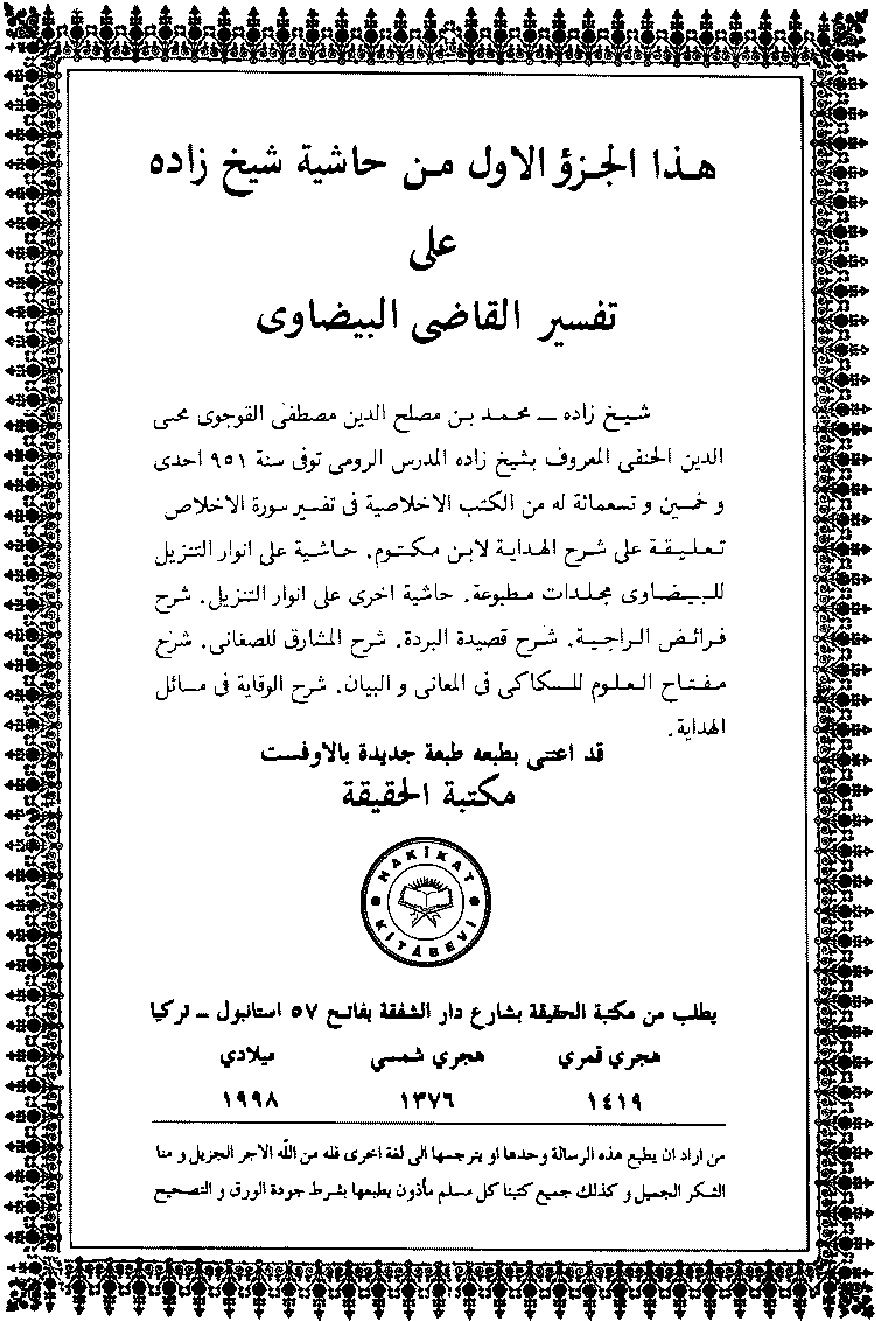 هذا الجزؤ الاول من حاشية شيخ زاده
على
تفسير القاضى البيضاوى
شيخ زاده ــ محمد بن مصلح الدين مصطفى القوجوى محيى
الدين الحنفى المعروف بشيخ زاده المدرس الرومى توفى سنة ٩٥١ احدى
و خمسين و تسعمائة له من الكتب الاخلاصية فى تفسير سورة الاخلاص
تعليقة على شرح الهداية لابن مكتوم. حاشية على انوار التنزيل
للبيضاوى مجلدات مطبوعة. حاشية اخرى على انوار التنزيل. شرح
فرائض الراجية. شرح قصيدة البردة. شرح المشارق للصغانى. شرح
مفتاح العلوم للسكاكى فى المعانى و البيان. شرح الوقاية فى مسائل
الهداية.
قد اعتنى بطبعه طبعة جديدة بالاوفست
مكتبة الحقيقة
HAKİKAT
KİTABEVİ
يطلب من مكتبة الحقيقة بشارع دار الشفقة بفاتح ٥٧ استانبول ــ تركيا
هجري قمري هجري شمسي ميلادي
١٤١٩ ١٣٧٦ ١٩٩٨
من اراد ان يطبع هذه الرسالة وحدها او يترجمها الى لغة اخرى فله من الله الاجر الجزيل و منا
الشكر الجميل و كذلك جميع كتبنا كل مسلم مأذون بطبعها بشرط جودة الورق و التصحيح